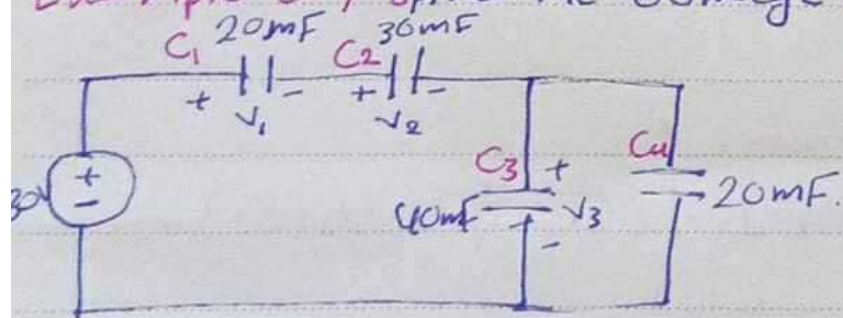 C₁ 20mF C₂ 30mF
+ - + -
V₁ V₂
+
-
C₃ + C₄
40mF V₃ 20mF.
-